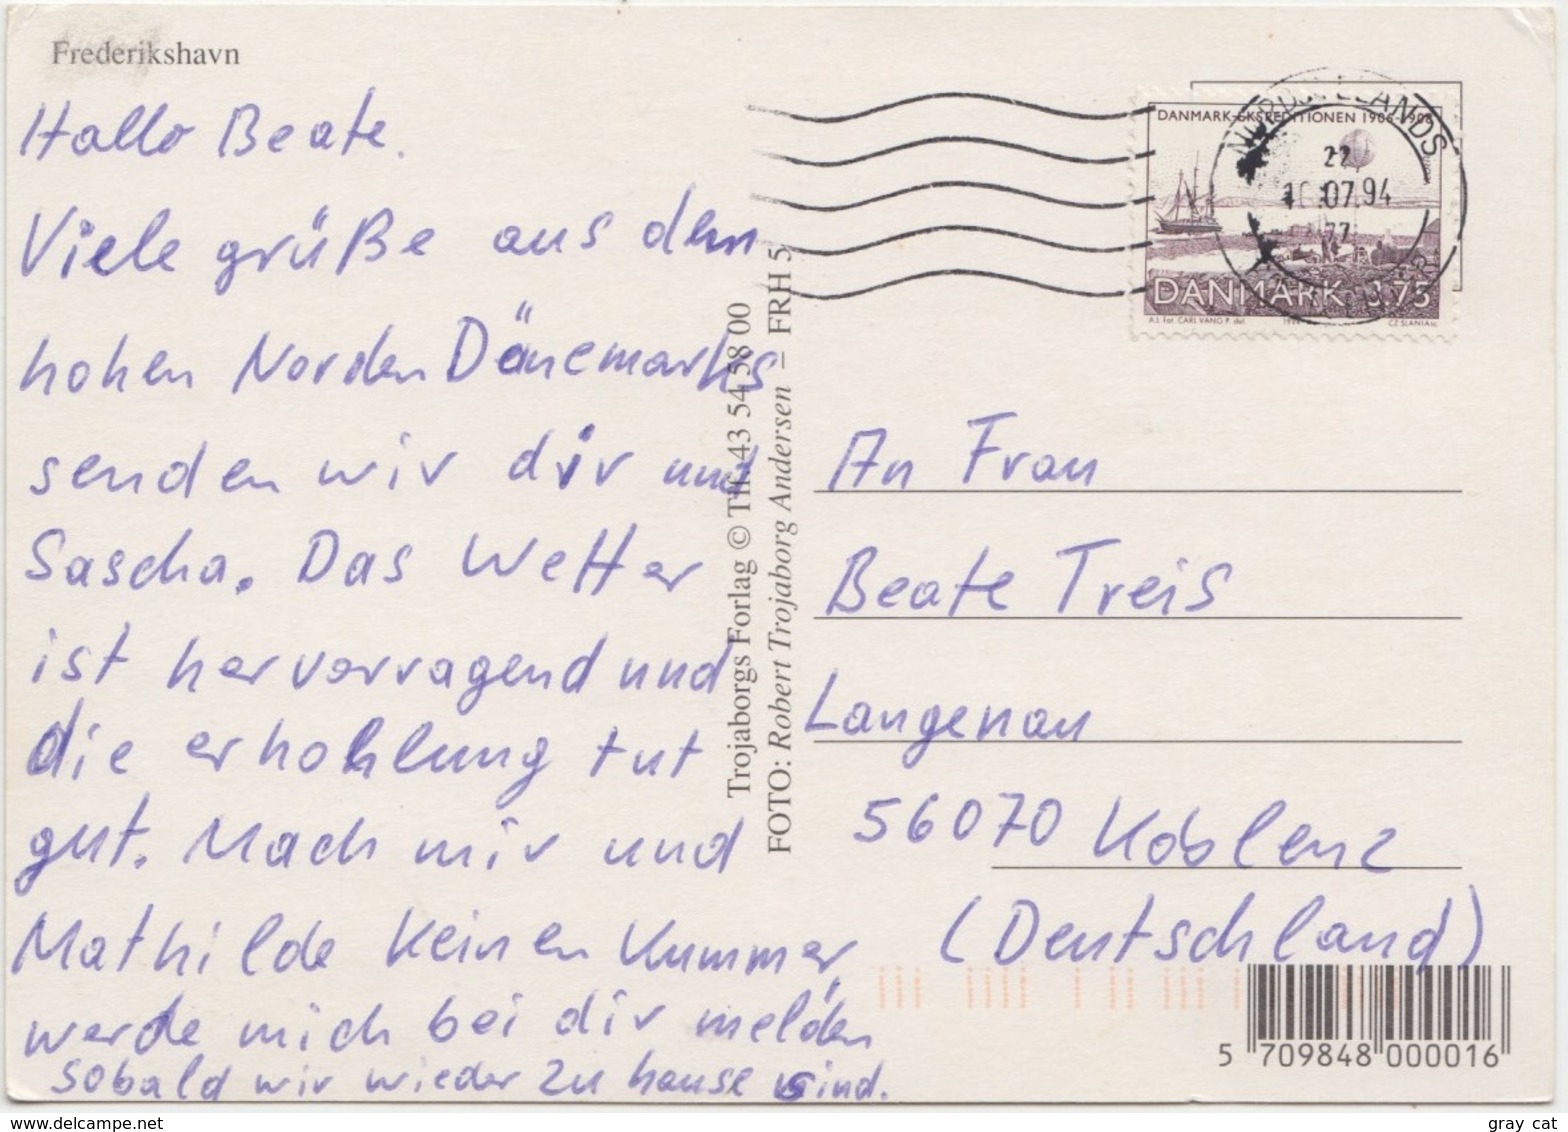 Frederikshavn
Hallo Beate.
Viele grüße aus dem
hohen Norden Dänemarks
senden wir dir und
Sascha. Das Wetter
ist hervorragend und
die erhohlung tut
gut. Mach mir und
Mathilde keinen Kummer
werde mich bei dir melden
sobald wir wieder zu hause sind.
Trojaborgs Forlag © Tlf. 43 54 58 00
FOTO: Robert Trojaborg Andersen – FRH 5
DANMARK-EKSPEDITIONEN 1906-1908
DANMARK 3.75
A.J. Fot. CARL VANG P. del.
CZ SLANIA sc.
22
07.94
An Frau
Beate Treis
Langenau
56070 Koblenz
(Deutschland)
5 709848 000016
gray cat